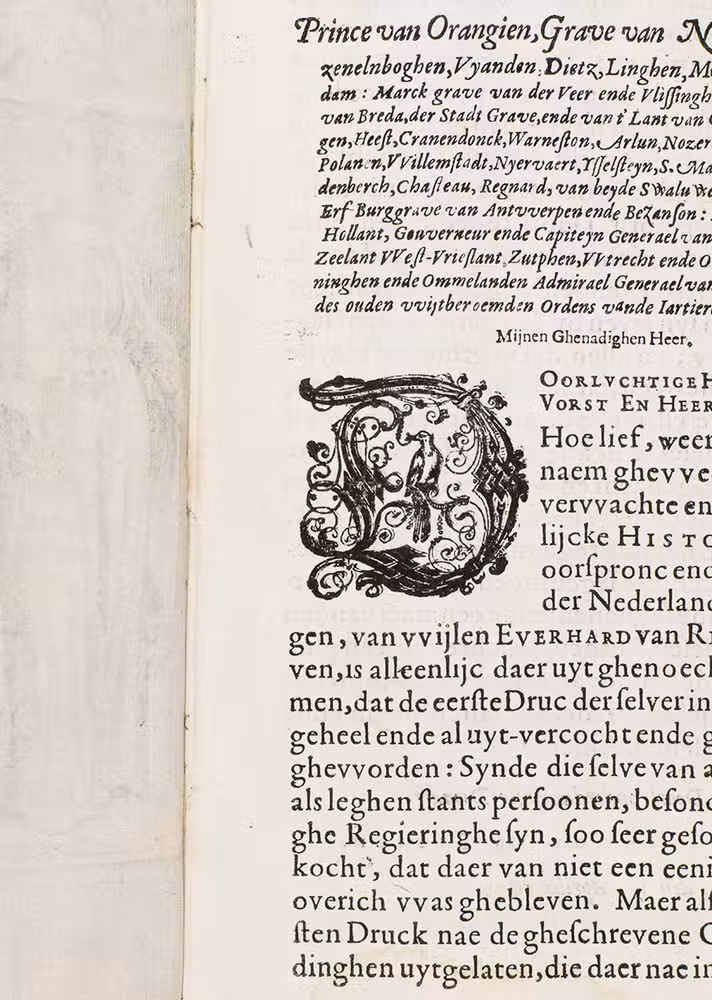 Prince van Orangien, Grave van N
zenelnboghen, Vyanden, Dietz, Linghen, M
dam: Marck grave van der Veer ende Vlißingh
van Breda, der Stadt Grave, ende van t' Lant van
gen, Heeſt, Cranendonck, Warneſton, Arlun, Nozer
Polanen, VVillemſtadt, Nyervaert, Yſſelſteyn, S. Ma
denberch, Chaſteau, Regnard, van beyde Swaluwe
Erf-Burggrave van Antvverpen ende Bezanſon:
Hollant, Gouverneur ende Capiteyn Generael van
Zeelant VVeſt-Vrieſlant, Zutphen, VVtrecht ende O
ninghen ende Ommelanden Admirael Generael van
des ouden vvijtberoemden Ordens vande Iartier
Mijnen Ghenadighen Heer.
DOORLVCHTIGE H
VORST EN HEER
Hoe lief, weer
naem ghevve
vervvachte en
lijcke HISTO
oorſpronc end
der Nederland
gen, van vvijlen EVERHARD van RE
ven, is alleenlijc daer uyt ghenoech
men, dat de eerſte Druc der ſelver in
geheel ende al uyt-vercocht ende g
ghevvorden: Synde die ſelve van a
als leghen ſtants perſoonen, beſond
ghe Regieringhe ſyn, ſoo ſeer geſo
kocht, dat daer van niet een eeni
overich vvas ghebleven. Maer alſ
ſten Druck nae de gheſchrevene C
dinghen uytgelaten, die daer nae in